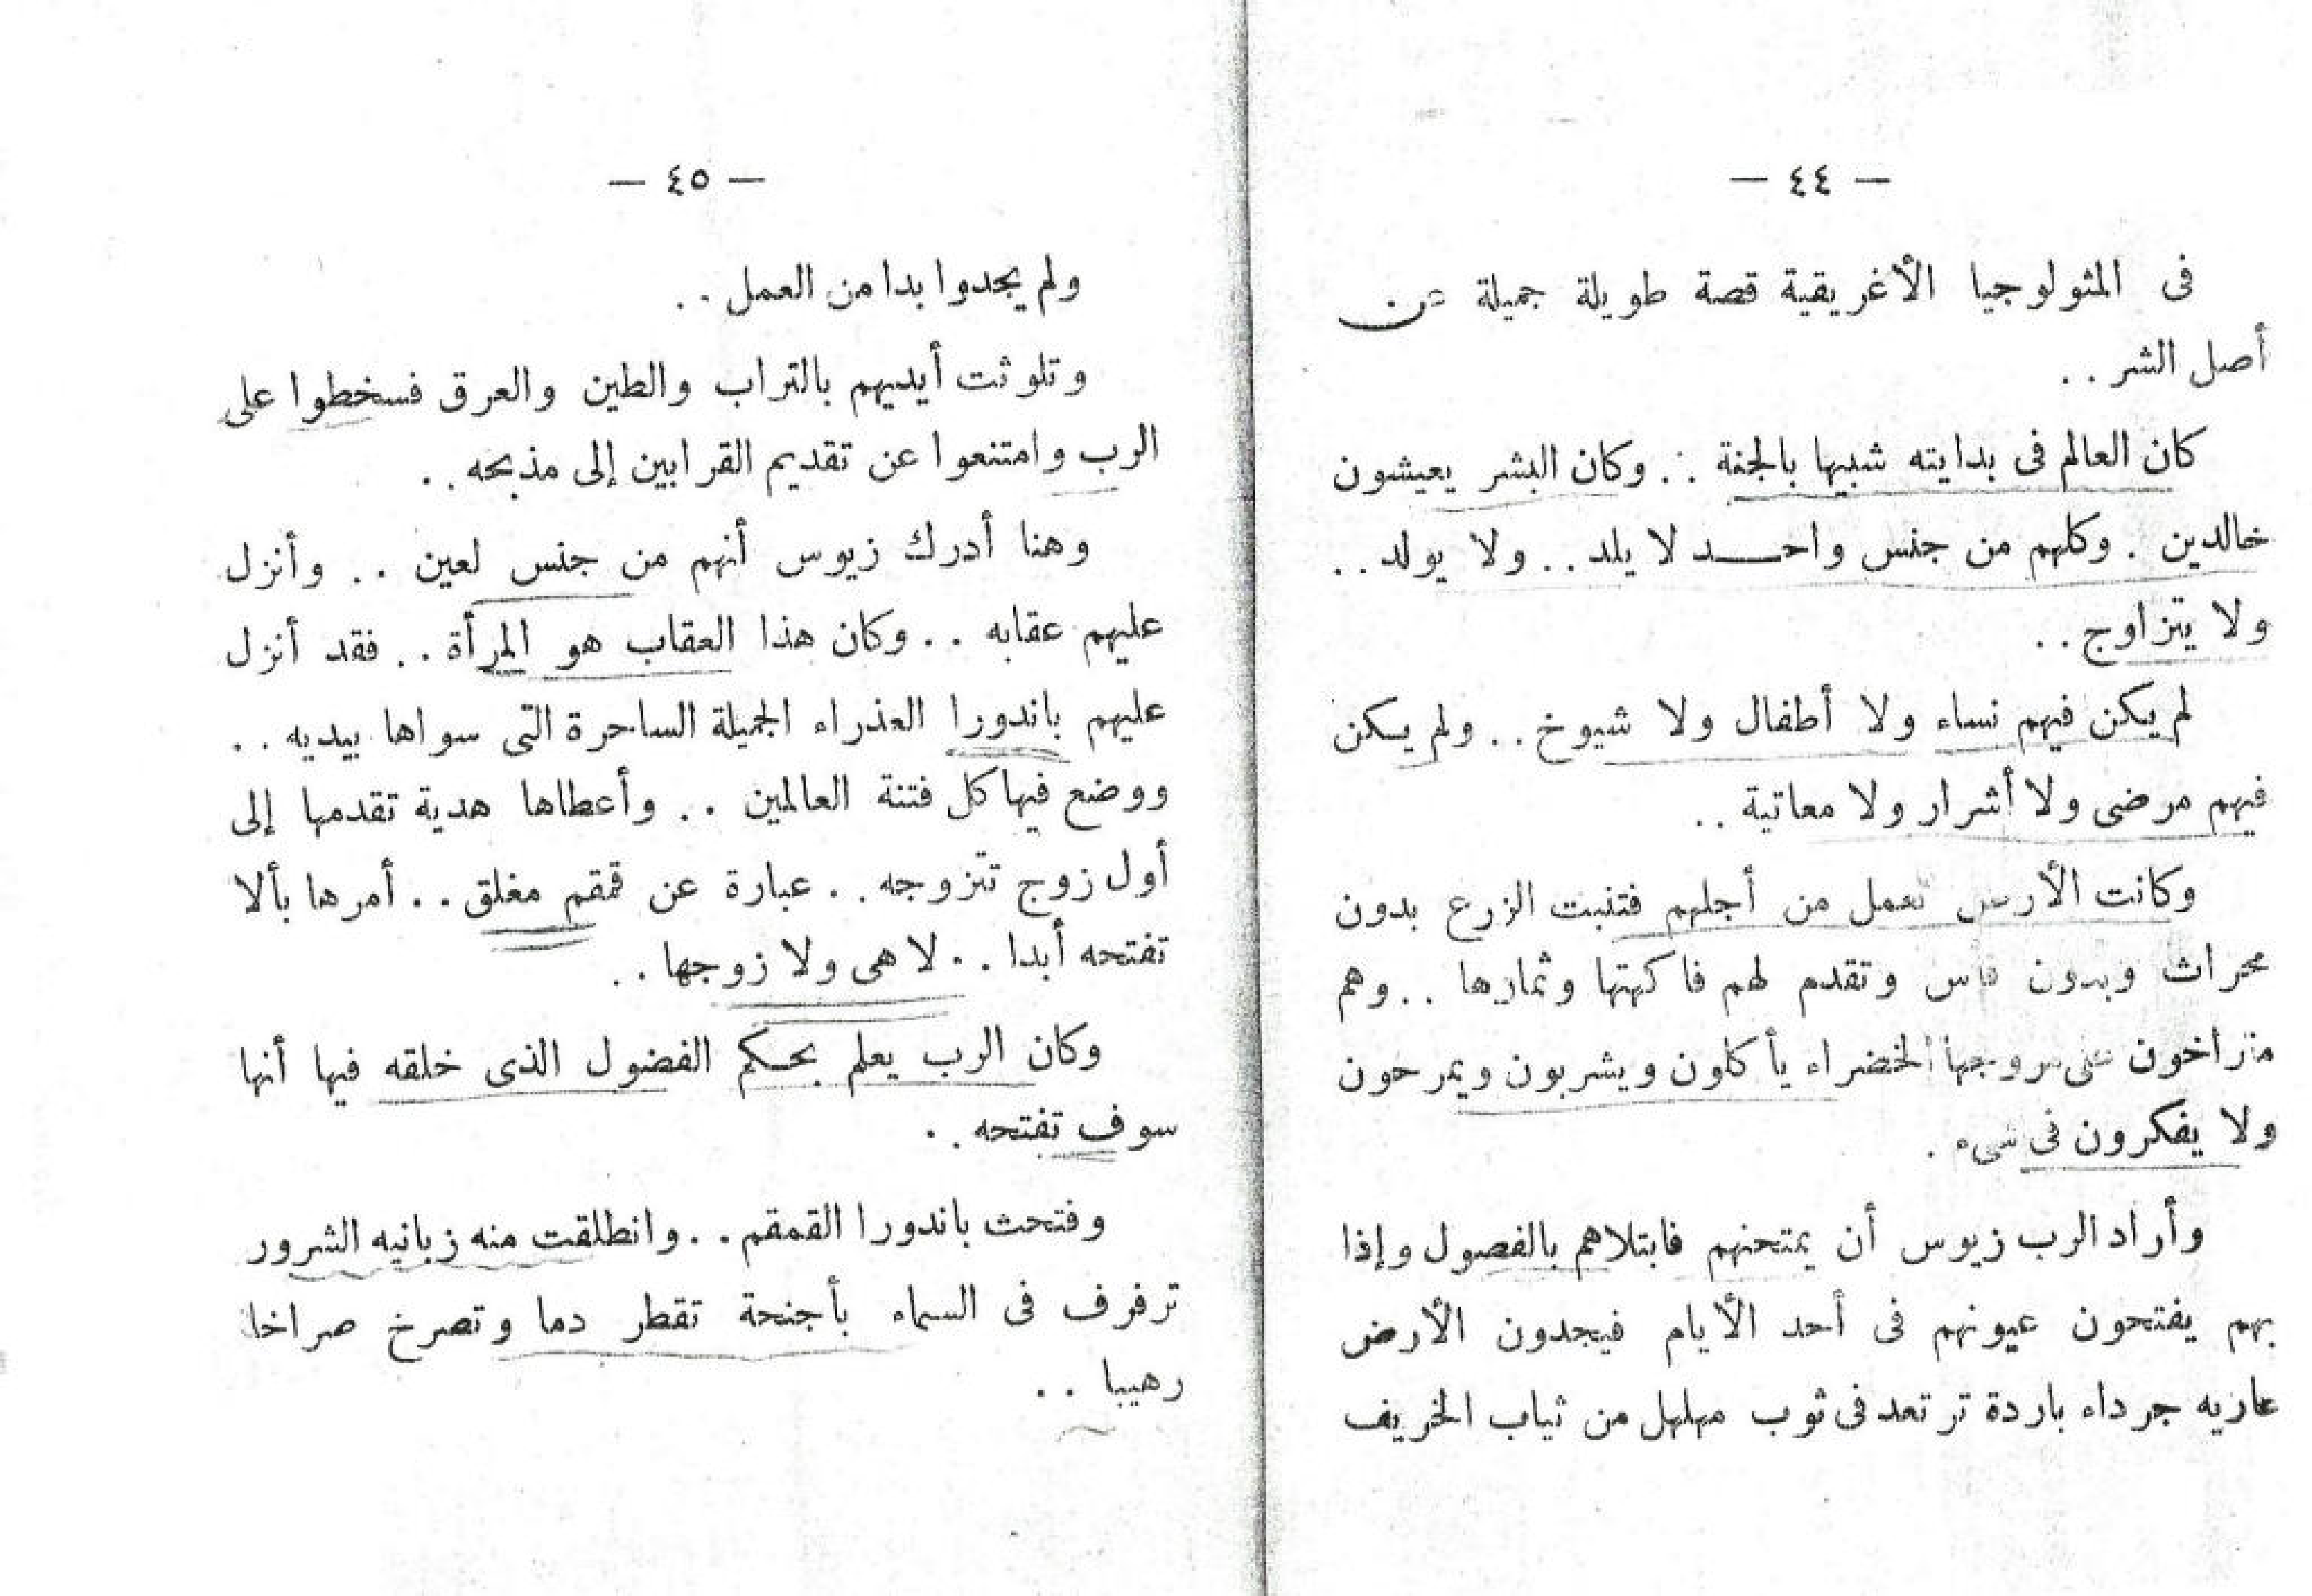 — ٤٤ —
فى المثولوجيا الأغريقية قصة طويلة جميلة عن
أصل الشر . .
كان العالم فى بدايته شبيها بالجنة . . وكان البشر يعيشون
خالدين . وكلهم من جنس واحـــد لا يلد . . ولا يولد . .
ولا يتزاوج . .
لم يكن فيهم نساء ولا أطفال ولا شيوخ . . ولم يكن
فيهم مرضى ولا أشرار ولا معاتية . .
وكانت الأرض تعمل من أجلهم فتنبت الزرع بدون
محراث وبدون فاس وتقدم لهم فاكهتها وثمارها . . وهم
متراخون على مروجها الخضراء يأكلون ويشربون ويمرحون
ولا يفكرون فى شىء .
وأراد الرب زيوس أن يمتحنهم فابتلاهم بالفصول وإذا
بهم يفتحون عيونهم فى أحد الأيام فيجدون الأرض
عاريه جرداء باردة ترتعد فى ثوب مهلهل من ثياب الخريف
— ٤٥ —
ولم يجدوا بدا من العمل . .
وتلوثت أيديهم بالتراب والطين والعرق فسخطوا على
الرب وامتنعوا عن تقديم القرابين إلى مذبحه . .
وهنا أدرك زيوس أنهم من جنس لعين . . وأنزل
عليهم عقابه . . وكان هذا العقاب هو المرأة . . فقد أنزل
عليهم باندورا العذراء الجميلة الساحرة التى سواها بيديه . .
ووضع فيها كل فتنة العالمين . . وأعطاها هدية تقدمها إلى
أول زوج تتزوجه . . عبارة عن قمقم مغلق . . أمرها بألا
تفتحه أبدا . . لا هى ولا زوجها . .
وكان الرب يعلم بحكم الفضول الذى خلقه فيها أنها
سوف تفتحه . .
وفتحث باندورا القمقم . . وانطلقت منه زبانيه الشرور
ترفرف فى السماء بأجنحة تقطر دما وتصرخ صراخا
رهيبا . .